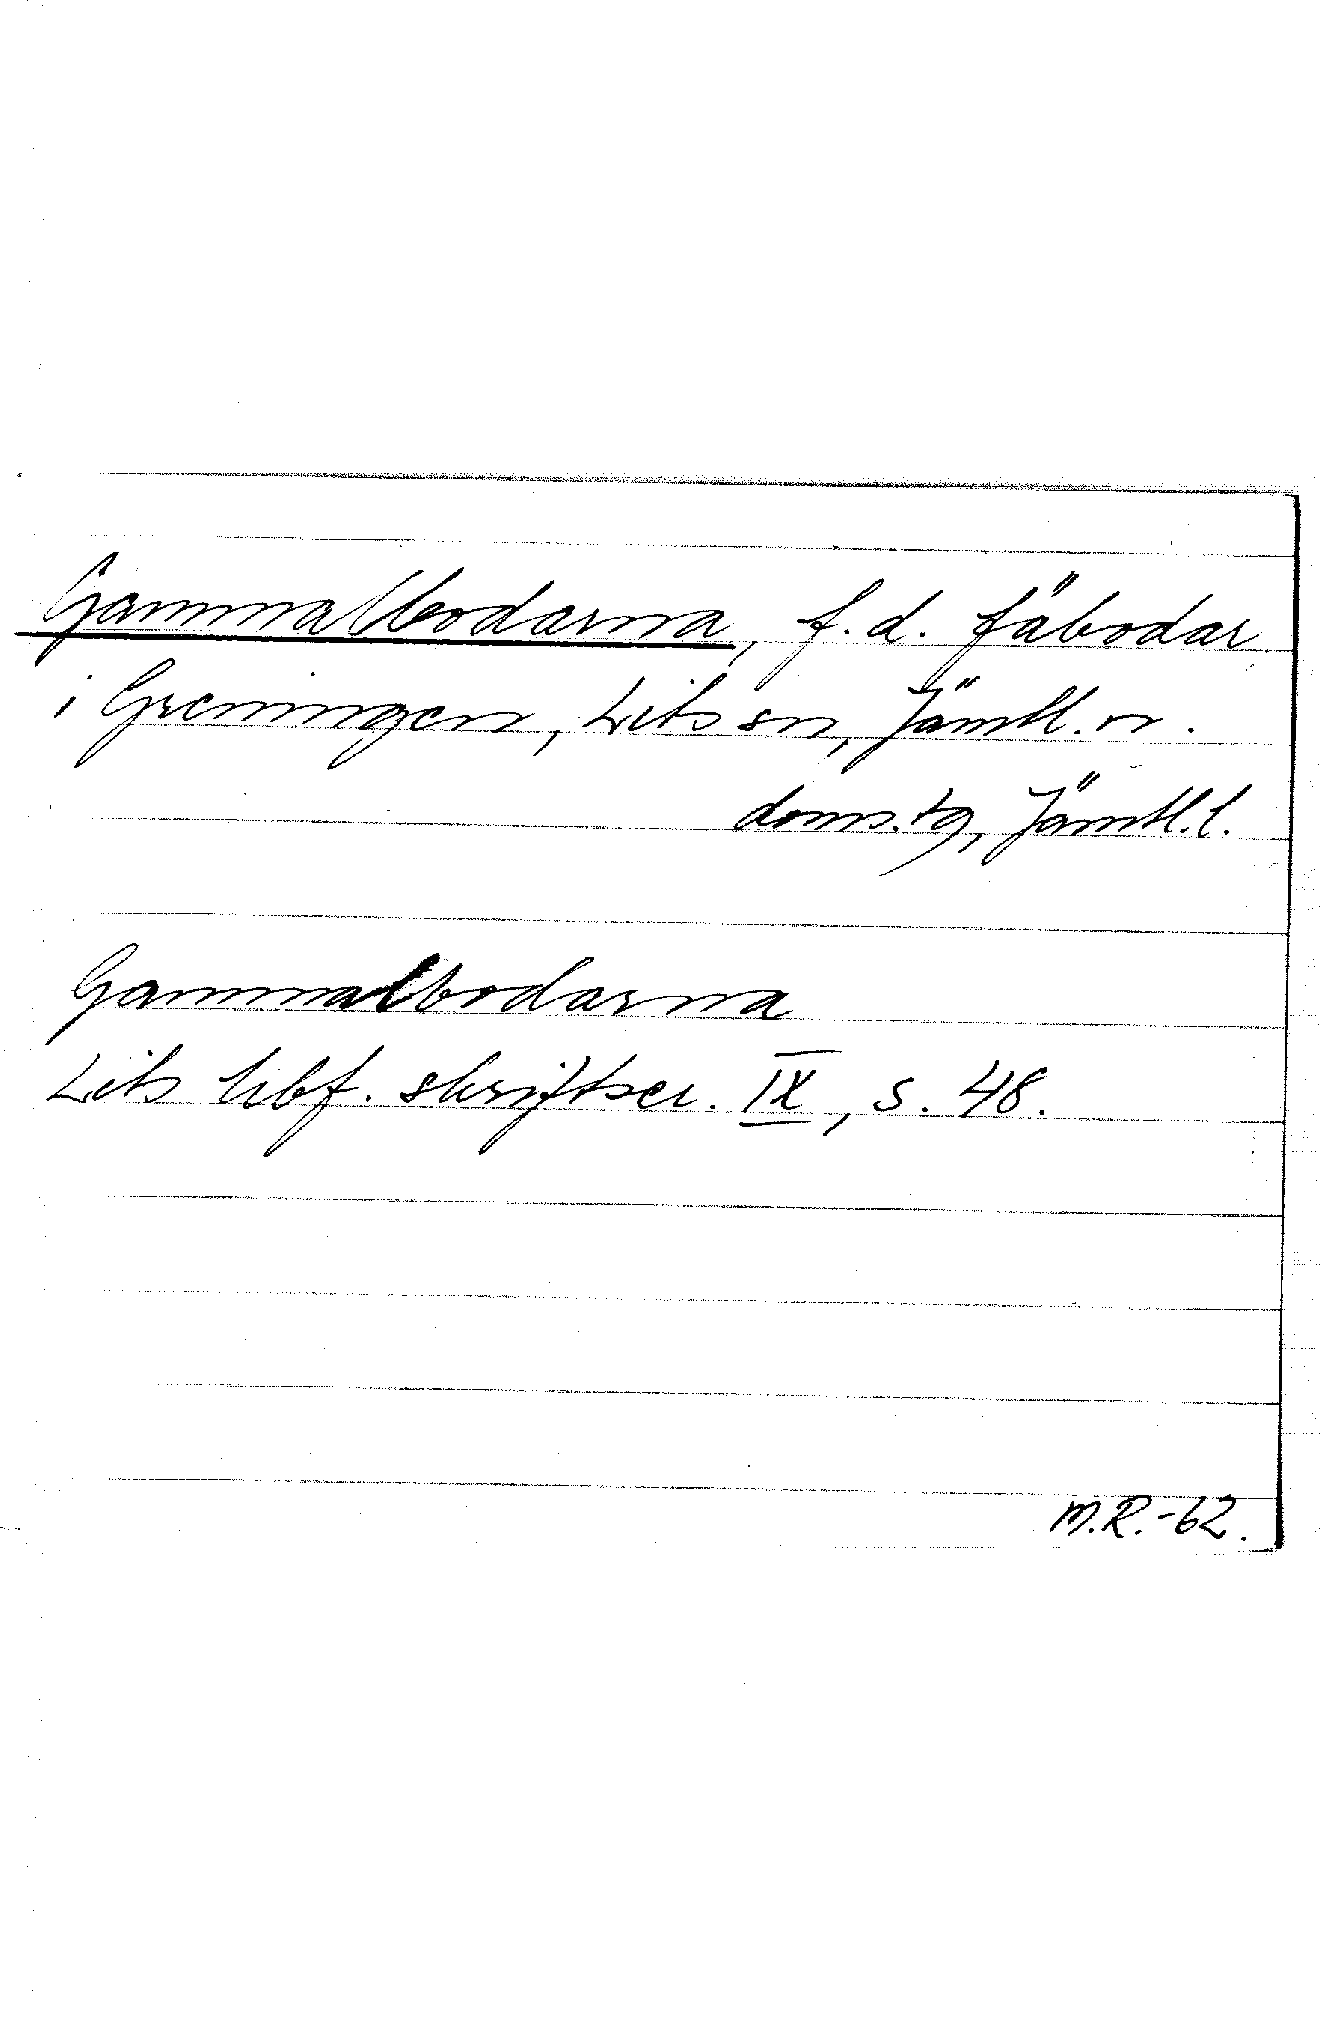 Gammalbodarna, f.d. fäbodar
i Greningen, Lits sn, Jämtl. n.
doms.tg, Jämtl.l.
Gammalbodarna
Lits hbf. skriftser. IX, s. 48.
M.R.-62.